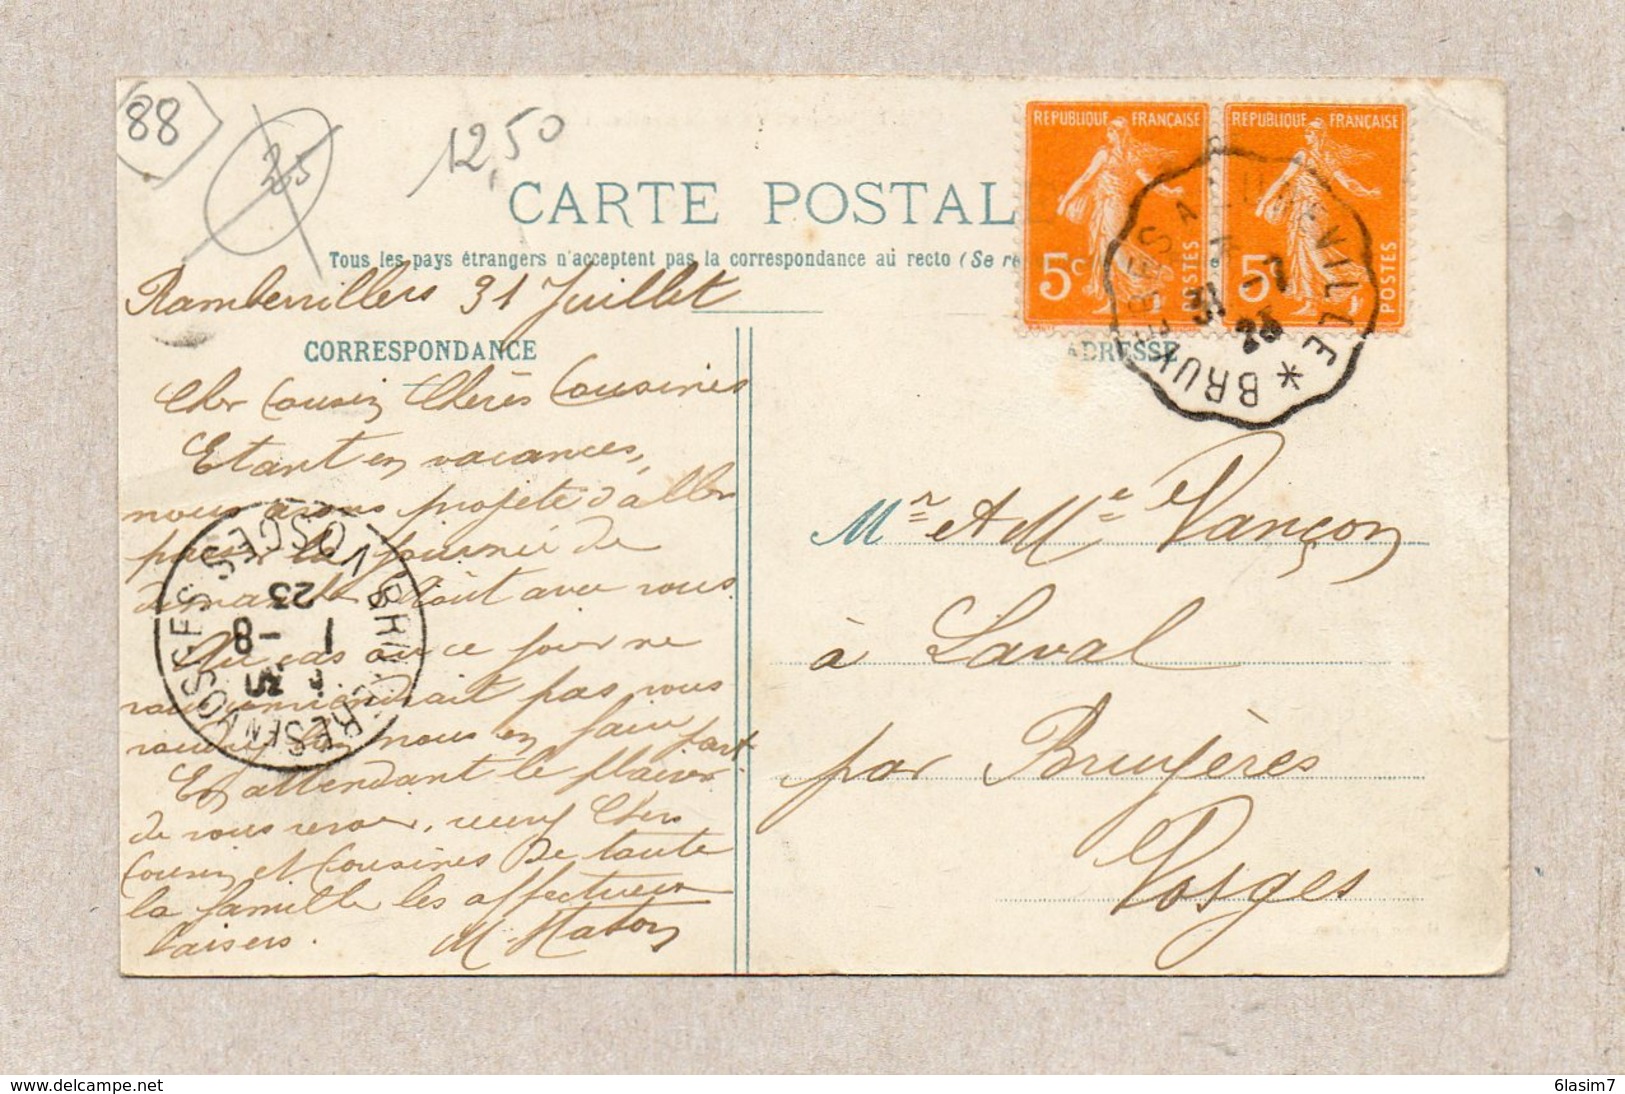 88
25
12,50
CARTE POSTAL
Tous les pays étrangers n'acceptent pas la correspondance au recto (Se re
REPUBLIQUE FRANÇAISE
5c
POSTES
REPUBLIQUE FRANÇAISE
5c
POSTES
BRUYERES A LUNEVILLE *
31 -7
23
Rambervillers 31 Juillet
CORRESPONDANCE
ADRESSE
Cher Cousin Chères Cousines
Etant en vacances,
nous avons projeté d'aller
passer la journée de
demain 1er Août avec vous.
Au cas où ce jour ne
vous conviendrait pas vous
voudrez bien nous en faire part.
En attendant le plaisir
de vous revoir, recevez Chers
Cousin et Cousines de toute
la famille les affectueux
baisers. M. Maton
VOSGES
23
1 -8
Mr et Mme Vançon
à Laval
par Bruyères
Vosges
delcampe.net
6lasim7